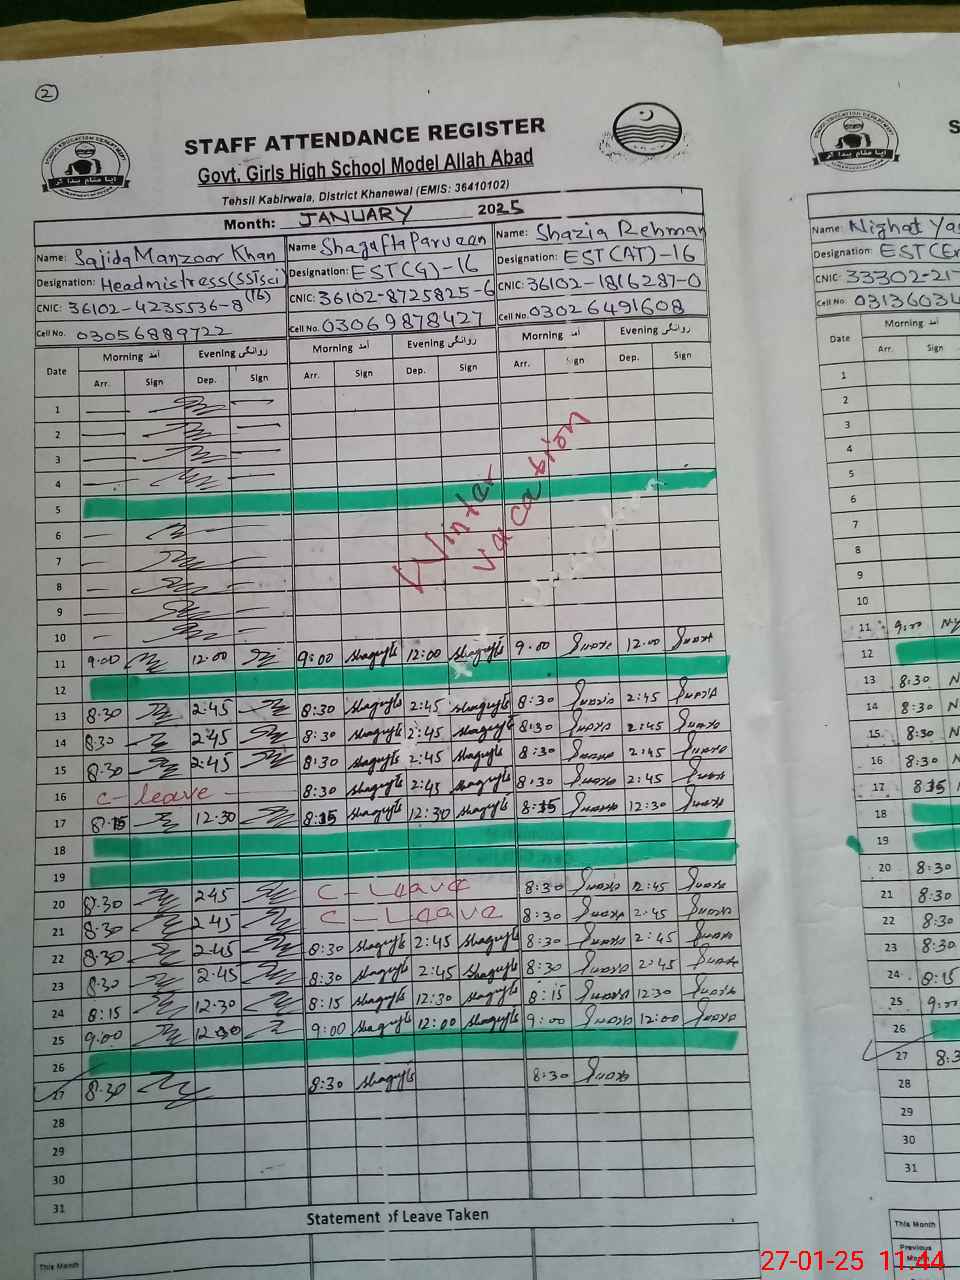 2
STAFF ATTENDANCE REGISTER
Govt. Girls High School Model Allah Abad
Tehsil Kabirwala, District Khanewal (EMIS: 36410102)
Month: JANUARY 2025
Name: Sajida Manzoor Khan Name Shagufta Parvaan Name: Shazia Rehman
Designation: Headmistress(SSTsci) (16) Designation: EST(G)-16 Designation: EST(AT)-16
CNIC: 36102-4235536-8 CNIC: 36102-8725825-6 CNIC: 36102-1816287-0
Cell No. 03056889722 Cell No. 03069878427 Cell No. 03026491608
Date Morning آمد Evening روانگی Morning آمد Evening روانگی Morning آمد Evening روانگی
Arr. Sign Dep. Sign Arr. Sign Dep. Sign Arr. Sign Dep. Sign
1
2
3
4
5
6
7
8
9
10
Winter
vacation
11 9:00 12:00 9:00 Shagufta 12:00 Shagufta 9:00 12:00
12
13 8:30 2:45 8:30 Shagufta 2:45 Shagufta 8:30 2:45
14 8:30 2:45 8:30 Shagufta 2:45 Shagufta 8:30 2:45
15 8:30 2:45 8:30 Shagufta 2:45 Shagufta 8:30 2:45
16 C-leave 8:30 Shagufta 2:45 Shagufta 8:30 2:45
17 8:15 12:30 8:15 Shagufta 12:30 Shagufta 8:15 12:30
18
19
20 8:30 2:45 C-Leave 8:30 2:45
21 8:30 2:45 C-Leave 8:30 2:45
22 8:30 2:45 8:30 Shagufta 2:45 Shagufta 8:30 2:45
23 8:30 2:45 8:30 Shagufta 2:45 Shagufta 8:30 2:45
24 8:15 12:30 8:15 Shagufta 12:30 Shagufta 8:15 12:30
25 9:00 12:00 9:00 Shagufta 12:00 Shagufta 9:00 12:00
26
27 8:30 8:30 Shagufta 8:30
28
29
30
31
Statement of Leave Taken
This Month
S
Name: Nighat Ya
Designation: EST(E
CNIC: 33302-217
Cell No. 03136034
Date Morning آمد
Arr. Sign
1
2
3
4
5
6
7
8
9
10
11 9:00 N.Y
12
13 8:30 N
14 8:30 N
15 8:30 N
16 8:30 N
17 8:15
18
19
20 8:30
21 8:30
22 8:30
23 8:30
24 8:15
25 9:00
26
27 8:3
28
29
30
31
This Month
Previous
27-01-25 11:44